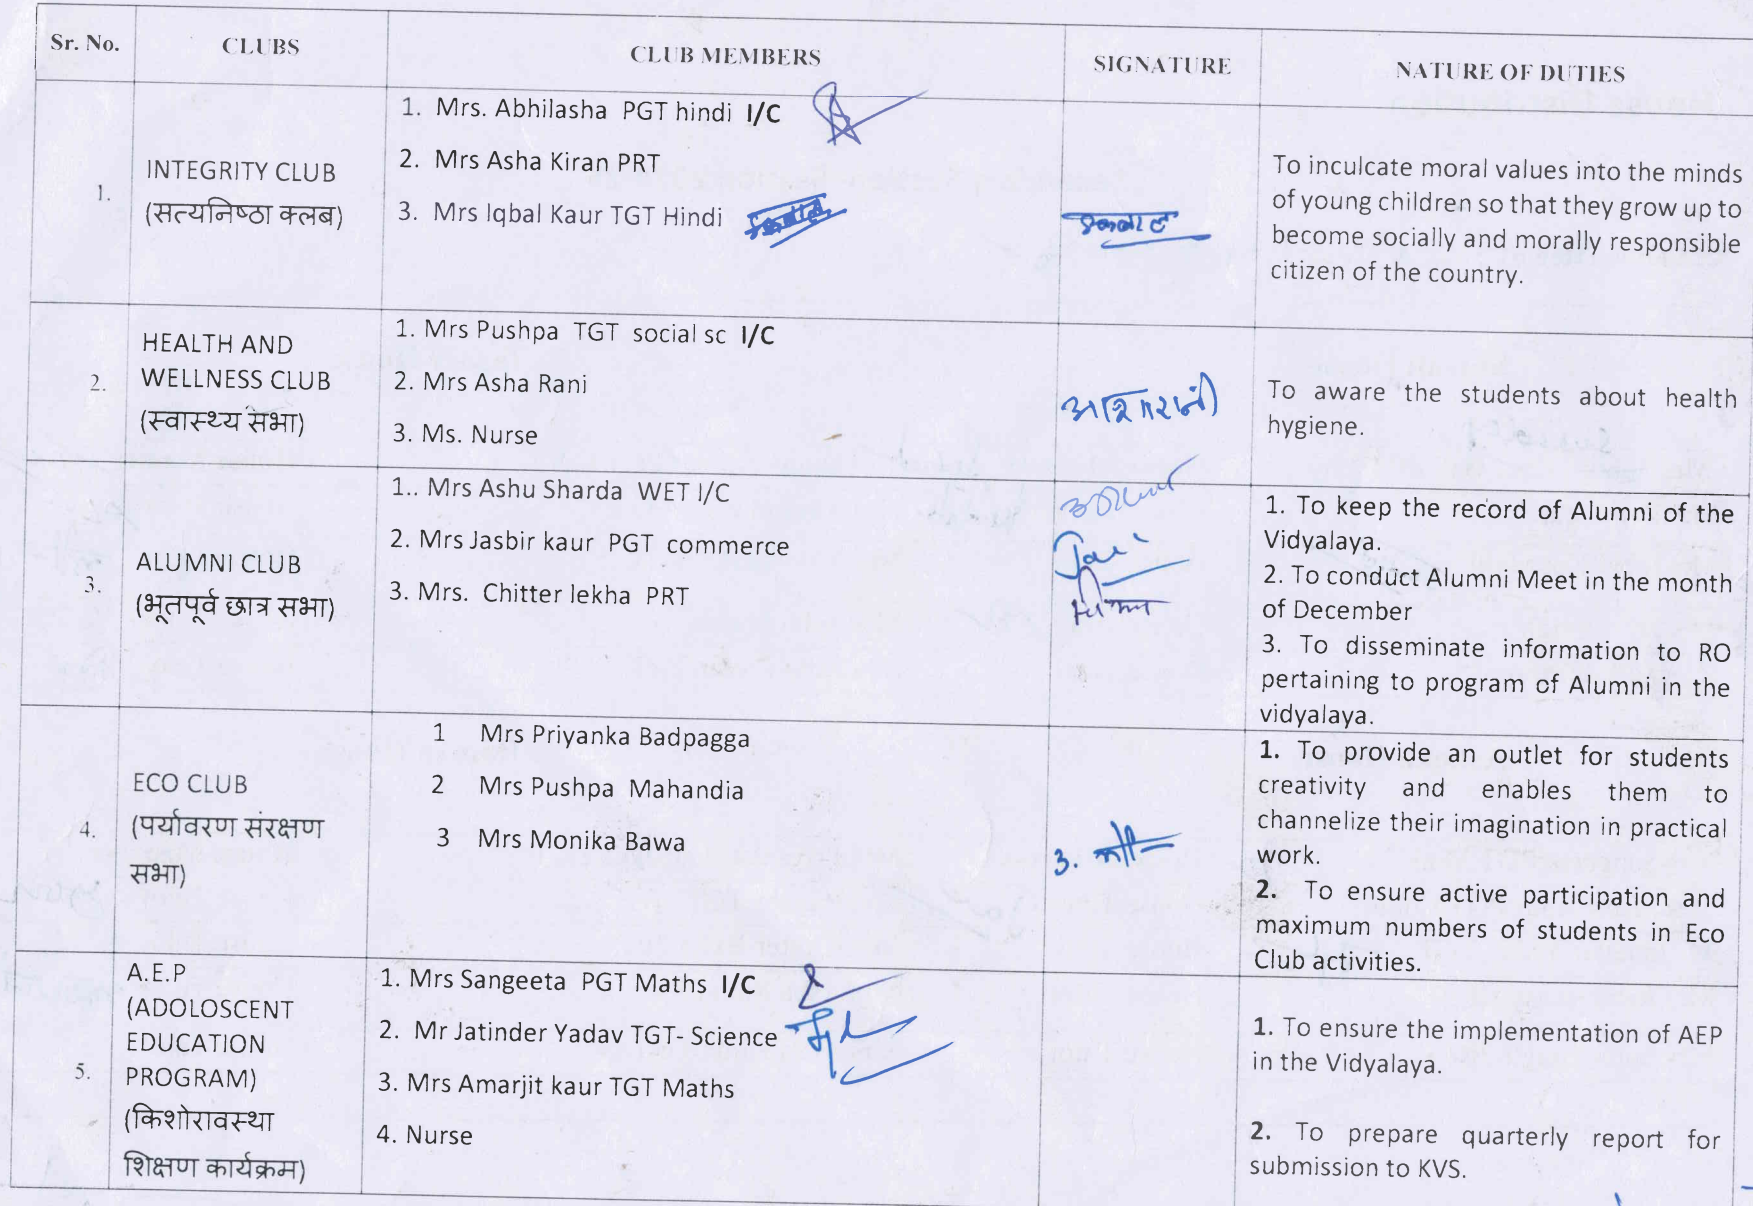 Sr. No. CLUBS CLUB MEMBERS SIGNATURE NATURE OF DUTIES
1.
INTEGRITY CLUB
(सत्यनिष्ठा क्लब)
1. Mrs. Abhilasha PGT hindi I/C
2. Mrs Asha Kiran PRT
3. Mrs Iqbal Kaur TGT Hindi
To inculcate moral values into the minds
of young children so that they grow up to
become socially and morally responsible
citizen of the country.
2.
HEALTH AND
WELLNESS CLUB
(स्वास्थ्य सभा)
1. Mrs Pushpa TGT social sc I/C
2. Mrs Asha Rani
3. Ms. Nurse
To aware the students about health
hygiene.
3.
ALUMNI CLUB
(भूतपूर्व छात्र सभा)
1.. Mrs Ashu Sharda WET I/C
2. Mrs Jasbir kaur PGT commerce
3. Mrs. Chitter lekha PRT
1. To keep the record of Alumni of the
Vidyalaya.
2. To conduct Alumni Meet in the month
of December
3. To disseminate information to RO
pertaining to program of Alumni in the
vidyalaya.
4.
ECO CLUB
(पर्यावरण संरक्षण
सभा)
1 Mrs Priyanka Badpagga
2 Mrs Pushpa Mahandia
3 Mrs Monika Bawa
3.
1. To provide an outlet for students
creativity and enables them to
channelize their imagination in practical
work.
2. To ensure active participation and
maximum numbers of students in Eco
Club activities.
5.
A.E.P
(ADOLOSCENT
EDUCATION
PROGRAM)
(किशोरावस्था
शिक्षण कार्यक्रम)
1. Mrs Sangeeta PGT Maths I/C
2. Mr Jatinder Yadav TGT- Science
3. Mrs Amarjit kaur TGT Maths
4. Nurse
1. To ensure the implementation of AEP
in the Vidyalaya.
2. To prepare quarterly report for
submission to KVS.